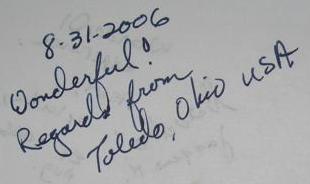 8-31-2006
Wonderful!
Regards from
Toledo, Ohio USA